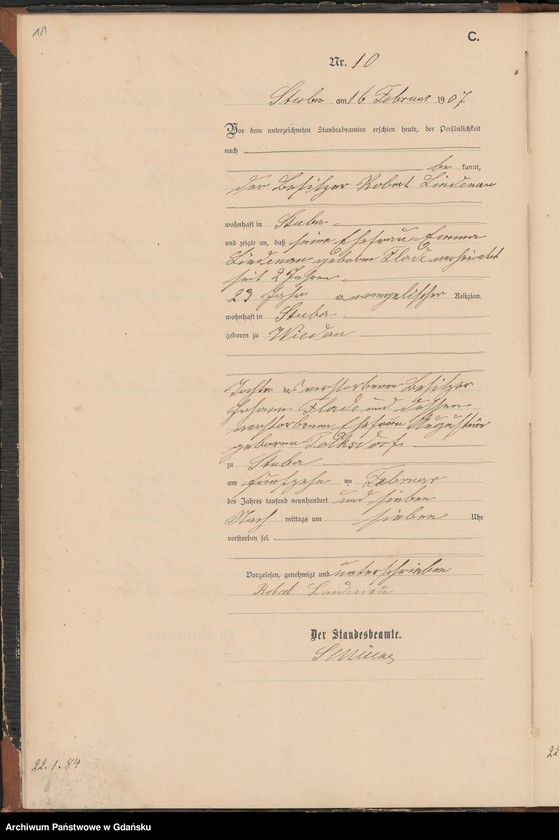 10
C.
Nr. 10
Stuba am 16 Februar 1907
Vor dem unterzeichneten Standesbeamten erschien heute, der Persönlichkeit
nach
be kannt,
der Besitzer Robert Lindenau
wohnhaft in Stuba
und zeigte an, daß seine Ehefrau Emma
Lindenau geborene Flade verheiratet
seit 2 Jahren
23 Jahr evangelischer Religion,
wohnhaft in Stuba
geboren zu
Tochter verstorbenen Besitzer
Johann Flade und dessen
verstorbenen Ehefrau Augustine
geborene Tolksdorf
zu Stuba
am fünfzehn ten Februar
des Jahres tausend neunhundert und sieben
Nach mittags um sieben Uhr
verstorben sei.
Vorgelesen, genehmigt und unterschrieben
Robert Lindenau
Der Standesbeamte.
22.1.84
22
Archiwum Państwowe w Gdańsku